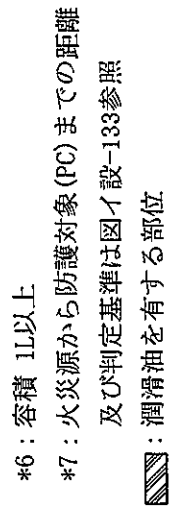 *6：容積 1L以上
*7：火災源から防護対象(PC)までの距離
及び判定基準は図イ設-133参照
：潤滑油を有する部位